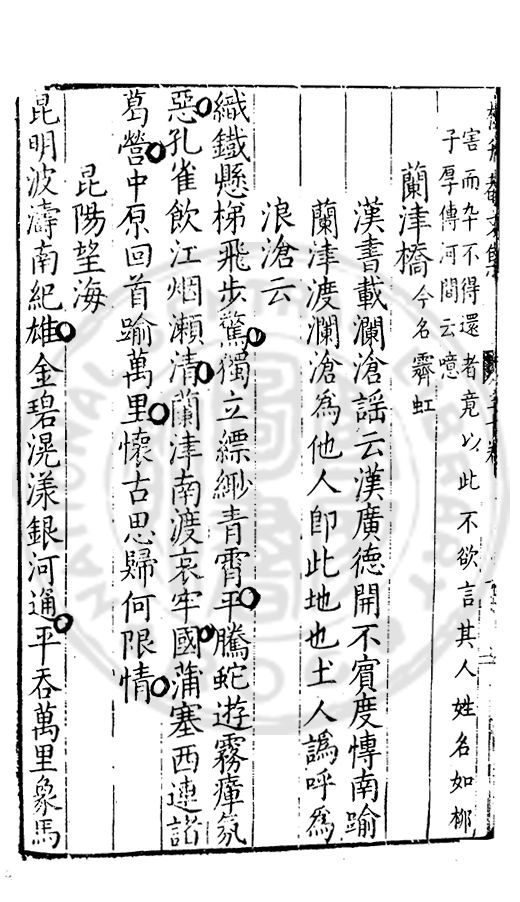 害而卆不得還者竟以此不欲言其人姓名如柳
子厚傳河間云噫
蘭津橋 今名霽虹
漢書載瀾滄謠云漢廣德開不賓度愽南踰
蘭津渡瀾滄為他人即此地也土人譌呼為
浪滄云
織鐵懸梯飛步驚獨立縹緲青霄平騰蛇遊霧瘴氛
惡孔雀飲江烟瀨清蘭津南渡哀牢國蒲塞西連諸
葛營中原回首踰萬里懷古思歸何限情
昆陽望海
昆明波濤南紀雄金碧滉漾銀河通平吞萬里象馬